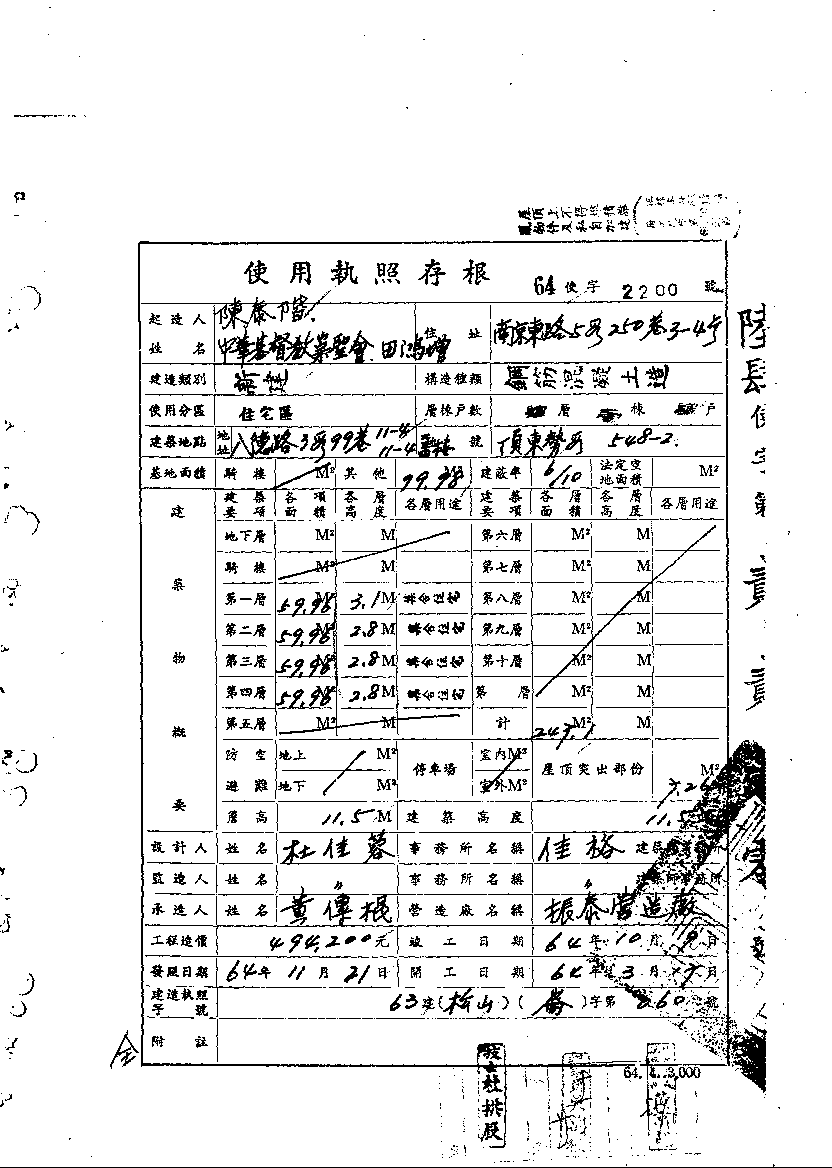 屋頂上不得堆積雜
亂物件及私自加建
使用執照存根 64使字 2200 號
起造人 姓名 陳泰階
中華基督教 會 田鴻增
住址 南京東路5段250巷3-4号
建造類別 新建 構造種類 鋼筋混凝土造
使用分區 住宅區 層棟戶數 層 棟 戶
建築地點 地址 八德路3段99巷11-4 11-4 號 頂東勢段 548-2.
基地面積 騎樓 M² 其他 99.98 建蔽率 6/10 法定空地面積 M²
建築物概要
建築要項 各項面積 各層高度 各層用途 建築要項 各層面積 各層高度 各層用途
地下層 M² M 第六層 M² M
騎樓 M² M 第七層 M² M
第一層 59.98 M² 3.1M 集合住宅 第八層 M² M
第二層 59.98 M² 2.8M 集合住宅 第九層 M² M
第三層 59.98 M² 2.8M 集合住宅 第十層 M² M
第四層 59.98 M² 2.8M 集合住宅 第 層 M² M
第五層 M² M 計 247.1 M² M
防空避難 地上 M² 停車場 室內M² 屋頂突出部份 7.26 M²
地下 M² 室外M²
層高 11.5M 建築高度 11.5
設計人 姓名 杜佳蓉 事務所名稱 佳格 建築師事務所
監造人 姓名 〃 事務所名稱 〃 建築師事務所
承造人 姓名 黃傳棍 營造廠名稱 振泰營造廠
工程造價 494,200元 竣工日期 64年10月9日
發照日期 64年11月21日 開工日期 64年3月9日
建造執照字號 63建(松山)( )字第 060號
附註
64. 4. 3,000
陸肆使字第貳貳零零
技士杜拱辰